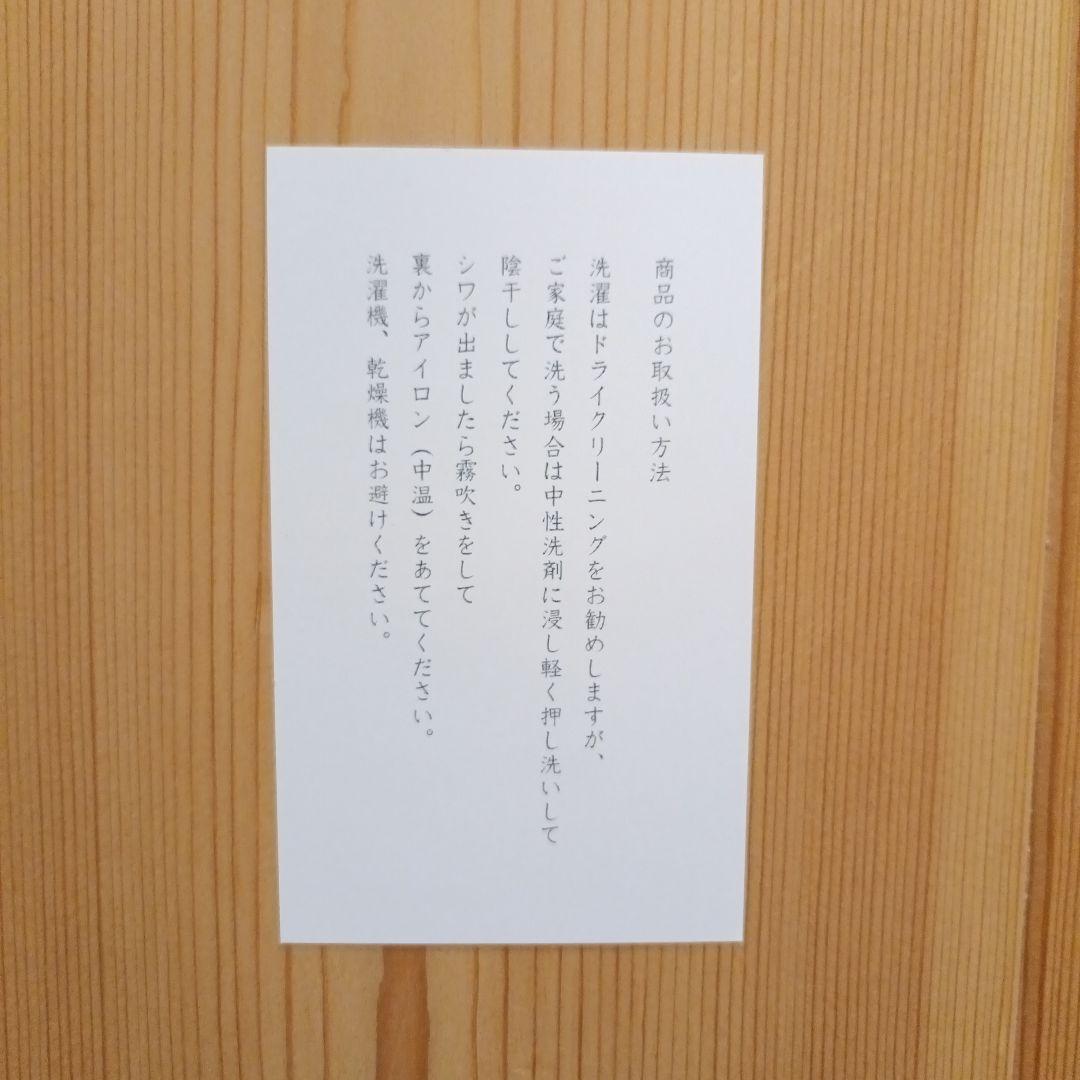 商品のお取扱い方法
洗濯はドライクリーニングをお勧めしますが、
ご家庭で洗う場合は中性洗剤に浸し軽く押し洗いして
陰干ししてください。
シワが出ましたら霧吹きをして
裏からアイロン（中温）をあててください。
洗濯機、乾燥機はお避けください。